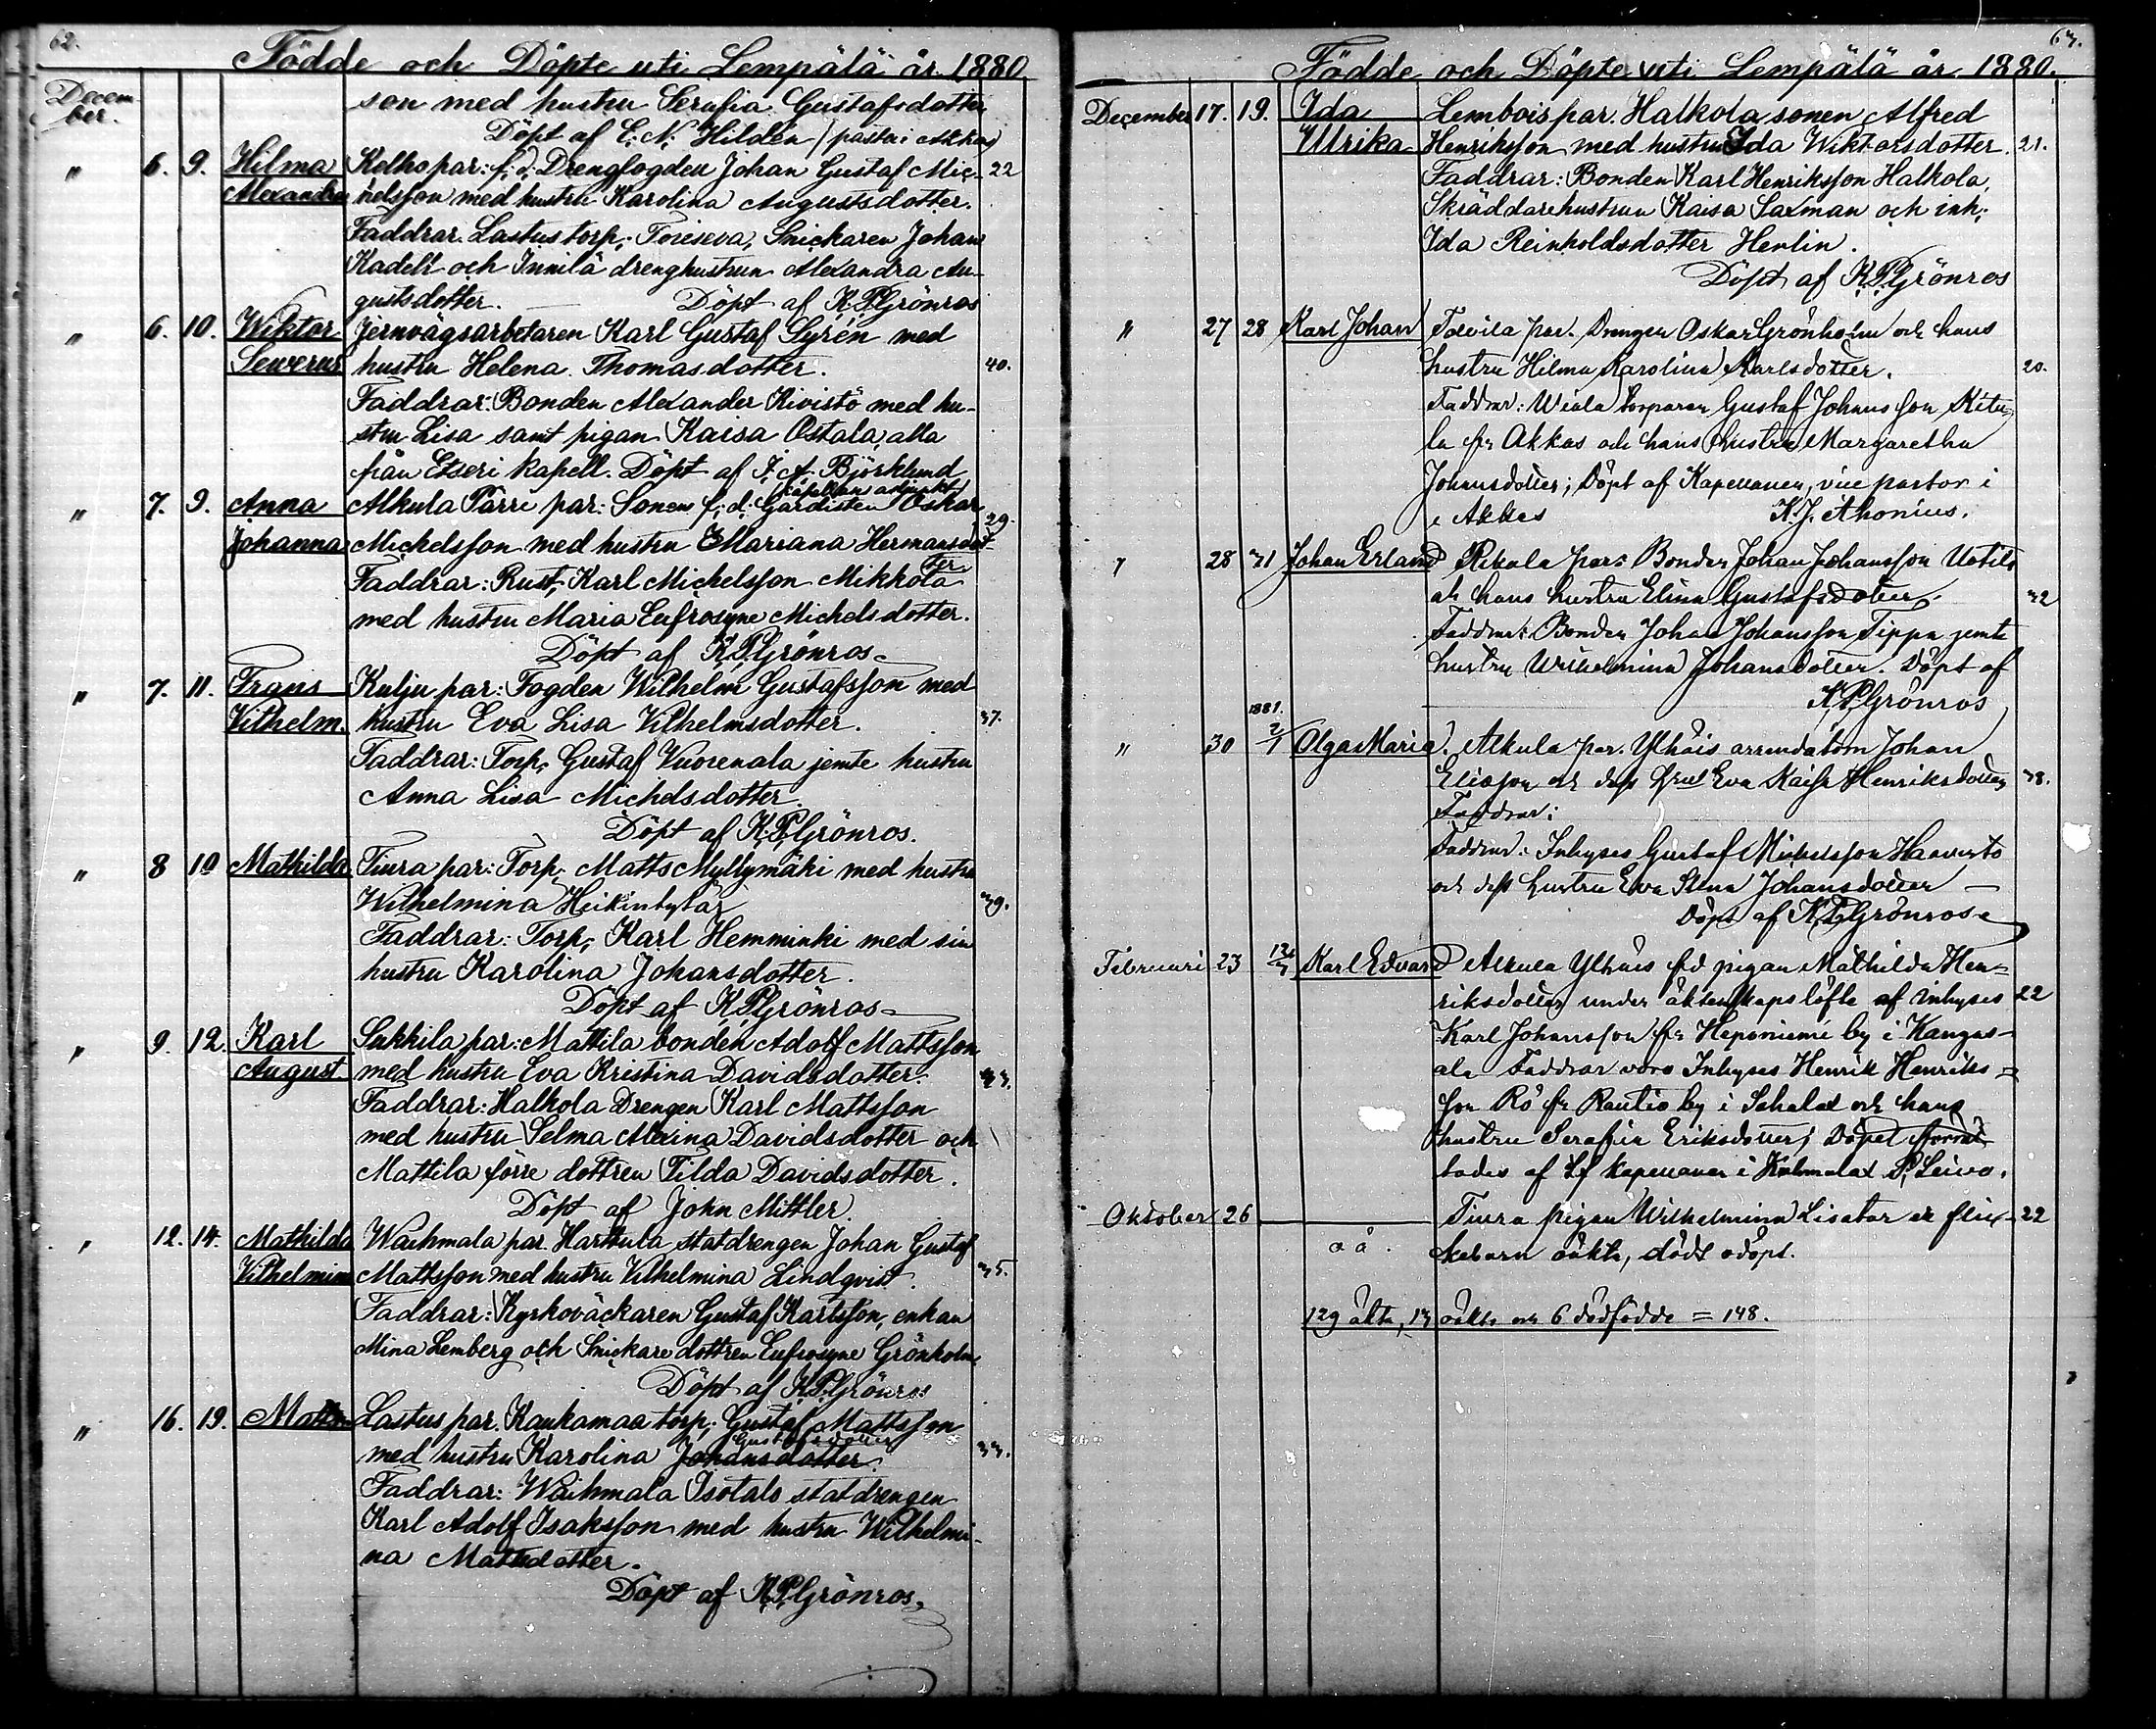 62.
Födde och Döpte uti Lempälä år 1880
Decem-
ber.
son med hustru Serafia Gustafsdotter
Döpt af E. N. Hilden / pastor i Akkas
" 6. 9. Hilma Kelho par: f. d. Drengfogden Johan Gustaf Mic- 22
Alexandra helsson med hustru Karolina Augustsdotter.
Faddrar. Lastustorp; Toiseva, Snickaren Johan
Kadell och Innilä drenghustrun Alexandra Au-
gustsdotter. Döpt af K. P. Grönros
" 6. 10. Wiktor Jernvägsarbetaren Karl Gustaf Syrén med
Severus hustru Helena Thomasdotter. 40.
Faddrar: Bonden Alexander Kivistö med hu-
stru Lisa samt pigan Kaisa Ostala, alla
från Etseri kapell. Döpt af J. A. Björklund
kapellans adjunkt
" 7. 9. Anna Alkula Pärri par: Sonen f. d. Gardisten Oskar 29.
Johanna Mickelsson med hustru Mariana Hermansdot-
ter
Faddrar: Rust. Karl Michelsson Mikkola
med hustru Maria Eufrosyne Michelsdotter.
Döpt af K. P. Grönros
" 7. 11. Frans Kulju par: Fogden Wilhelm Gustafsson med
Vilhelm. hustru Eva Lisa Vilhelmsdotter. 37.
Faddrar: Torp. Gustaf Vuorenala jemte hustru
Anna Lisa Michelsdotter.
Döpt af K. P. Grönros.
" 8 10 Mathilda Tiura par: Torp. Matts Myllymäki med hustru
Wilhelmina Heikintytär 39.
Faddrar: Torp. Karl Hemminki med sin
hustru Karolina Johansdotter.
Döpt af K. P. Grönros
" 9. 12. Karl Sukkila par: Mattila bonden Adolf Mattsson
August. med hustru Eva Kristina Davidsdotter.
Faddrar: Halkola Drengen Karl Mattsson
med hustru Selma Alexina Davidsdotter och
Mattila förre dottren Tilda Davidsdotter.
Döpt af John Mittler
" 12. 14. Mathilda Waihmala par. Harkula statdrengen Johan Gustaf
Vilhelmina Mattsson med hustru Vilhelmina Lindqvist. 35.
Faddrar: Kyrkoväckaren Gustaf Karlsson, enkan
Mina Lemberg och Snickare dottren Eufrosyne Grönholm
Döpt af K. P. Grönros
" 16. 19. Matts Lastus par. Kaukamaa torp. Gustaf Mattsson
Gustafsdotter
med hustru Karolina Johansdotter. 33.
Faddrar: Waihmala Isotalo statdrengen
Karl Adolf Isaksson med hustru Wilhelmi-
na Mattsdotter.
Döpt af K. P. Grönros.
63.
Födde och Döpte uti Lempälä år 1880.
December 17. 19. Ida Lembois par. Halkola sonen Alfred
Ulrika Henriksson med hustru Ida Wiktorsdotter. 21.
Faddrar: Bonden Karl Henriksson Halkola,
Skräddarehustrun Kaisa Saxman och inh.
Ida Reinholdsdotter Henlin.
Döpt af K. P. Grönros
" 27 28 Karl Johan par. Drengen Oskar Grönholm och hans
hustru Hilma Karolina Karlsdotter. 20.
Faddrar: Wiala torparen Gustaf Johansson Kitu-
la fr Akkas och hans hustru Margaretha
Johansdotter; Döpt af Kapellanen, vice pastor i
i Akkas K. J. Ahonius.
" 28 31 Johan Erland Rikala par: Bonden Johan Johansson Uotila
och hans hustru Elina Gustafsdotter. 32
Faddrar: Bonden Johan Johansson Tippa jemte
hustru Wilhelmina Johansdotter. Döpt af
K. P. Grönros
1881.
" 30 2/1 Olga Maria. Alkula par. Ylhäis arrendatorn Johan
Eliasson och dess hustru Eva Kaisa Henriksdotter 38.
Faddrar:
Faddrar: Inhyses Gustaf Michelsson Haavisto
och dess hustru Eva Stina Johansdotter
Döpt af K. P. Grönros
Februari 23 Karl Edvard Alkula Ylhäis fd pigan Mathilda Hen-
riksdotter under äktenskapslöfte af inhyses 22
Karl Johansson fr Heponiemi by i Kangas-
ala Faddrar voro Inhyses Henrik Henriks-
son Rö fr Rautio by i Sahalax och hans
hustru Serafia Eriksdotter; Döpet förrät-
tades af kapellanen i Kuhmalax P. Leivo.
Oktober 26 Tiura pigan Wilhelmina Lisatar ett flic- 22
oä. kebarn oäkta, dödt odöpt.
129 äkta, 13 oäkta och 6 dödfödde = 148.